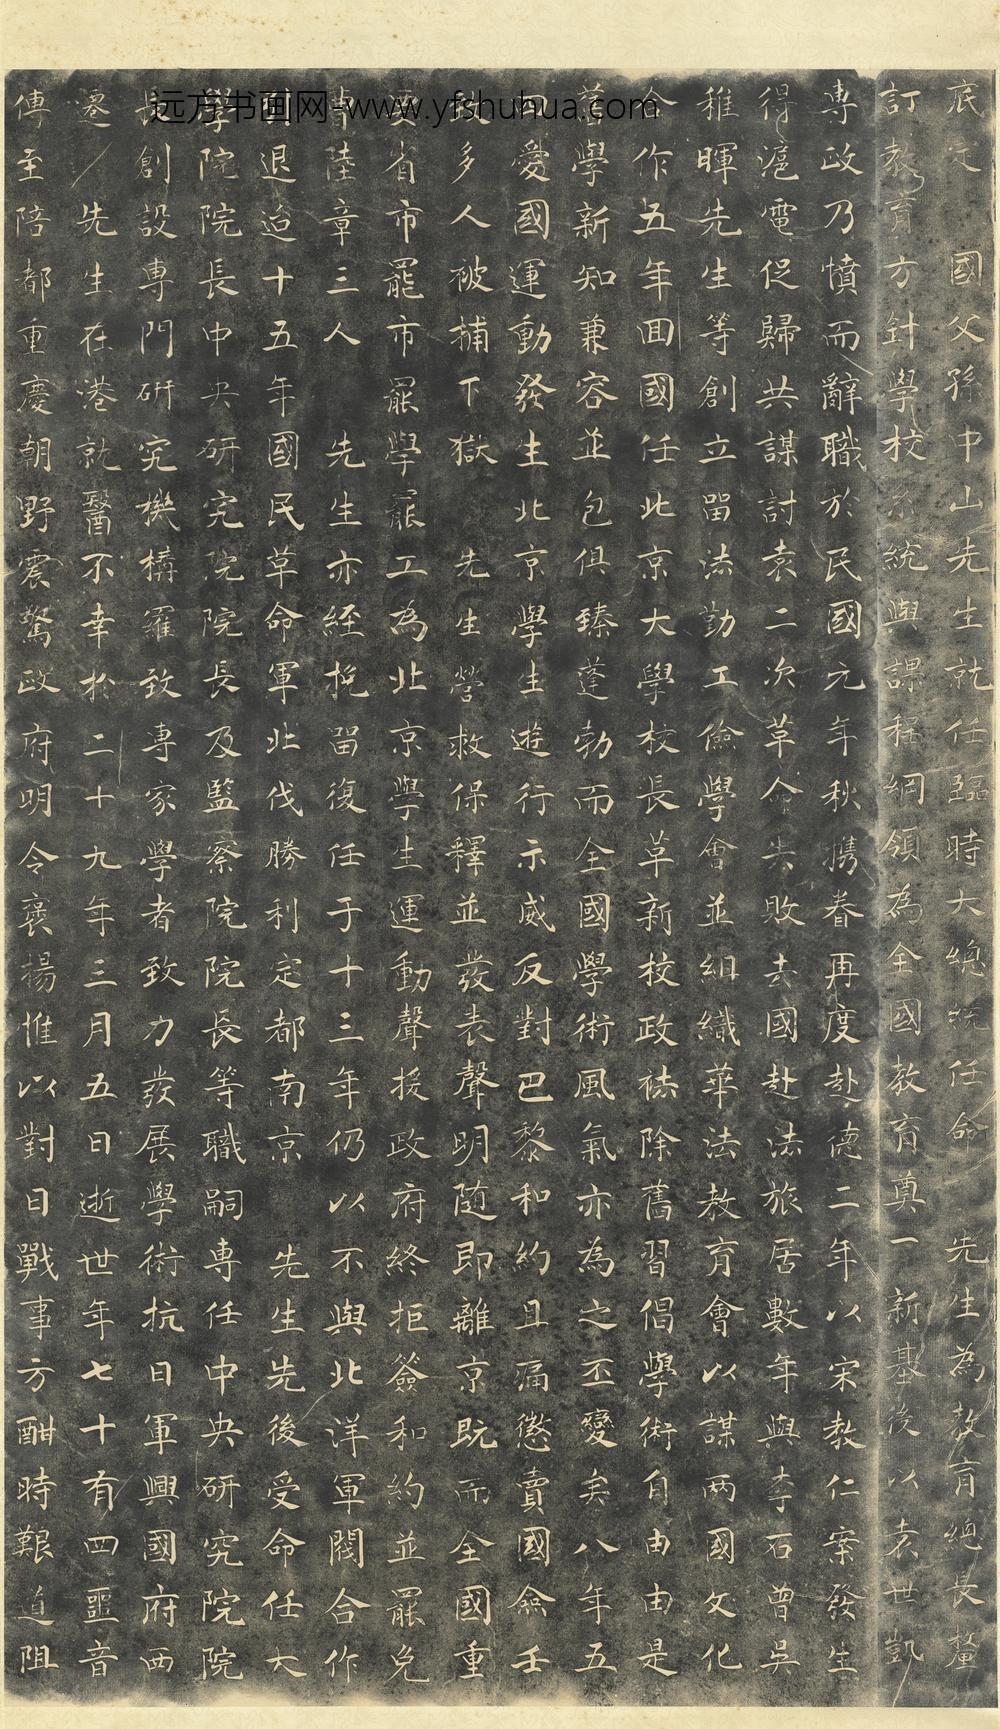 底定　國父孫中山先生就任臨時大總統任命　先生為教育總長釐
訂教育方針學校系統與課程網領為全國教育奠一新基後以袁世凱
專政乃憤而辭職於民國元年秋攜眷再度赴德二年以宋教仁案發生
得滬電促歸共謀討袁二次革命失敗去國赴法旅居數年與李石曾吳
稚暉先生等創立留法勤工儉學會並組織華法教育會以謀兩國文化
合作五年回國任北京大學校長革新校政祛除舊習倡學術自由由是
舊學新知兼容並包俱臻蓬勃而全國學術風氣亦為之丕變矣八年五
四愛國運動發生北京學生遊行示威反對巴黎和約且痛懲賣國僉壬
致多人被捕下獄　先生營救保釋並發表聲明隨即離京既而全國重
要省市罷市罷學罷工為北京學生運動聲援政府終拒簽和約並罷免
曹陸章三人　先生亦經挽留復任于十三年仍以不與北洋軍閥合作
而退迨十五年國民革命軍北伐勝利定都南京　先生先後受命任大
學院院長中央研究院院長及監察院院長等職嗣專任中央研究院院
長創設專門研究機構羅致專家學者致力發展學術抗日軍興國府西
遷　先生在港就醫不幸於二十九年三月五日逝世年七十有四噩音
傳至陪都重慶朝野震驚政府明令褒揚惟以對日戰事方酣時艱道阻
远方书画网-www.yfshuhua.com